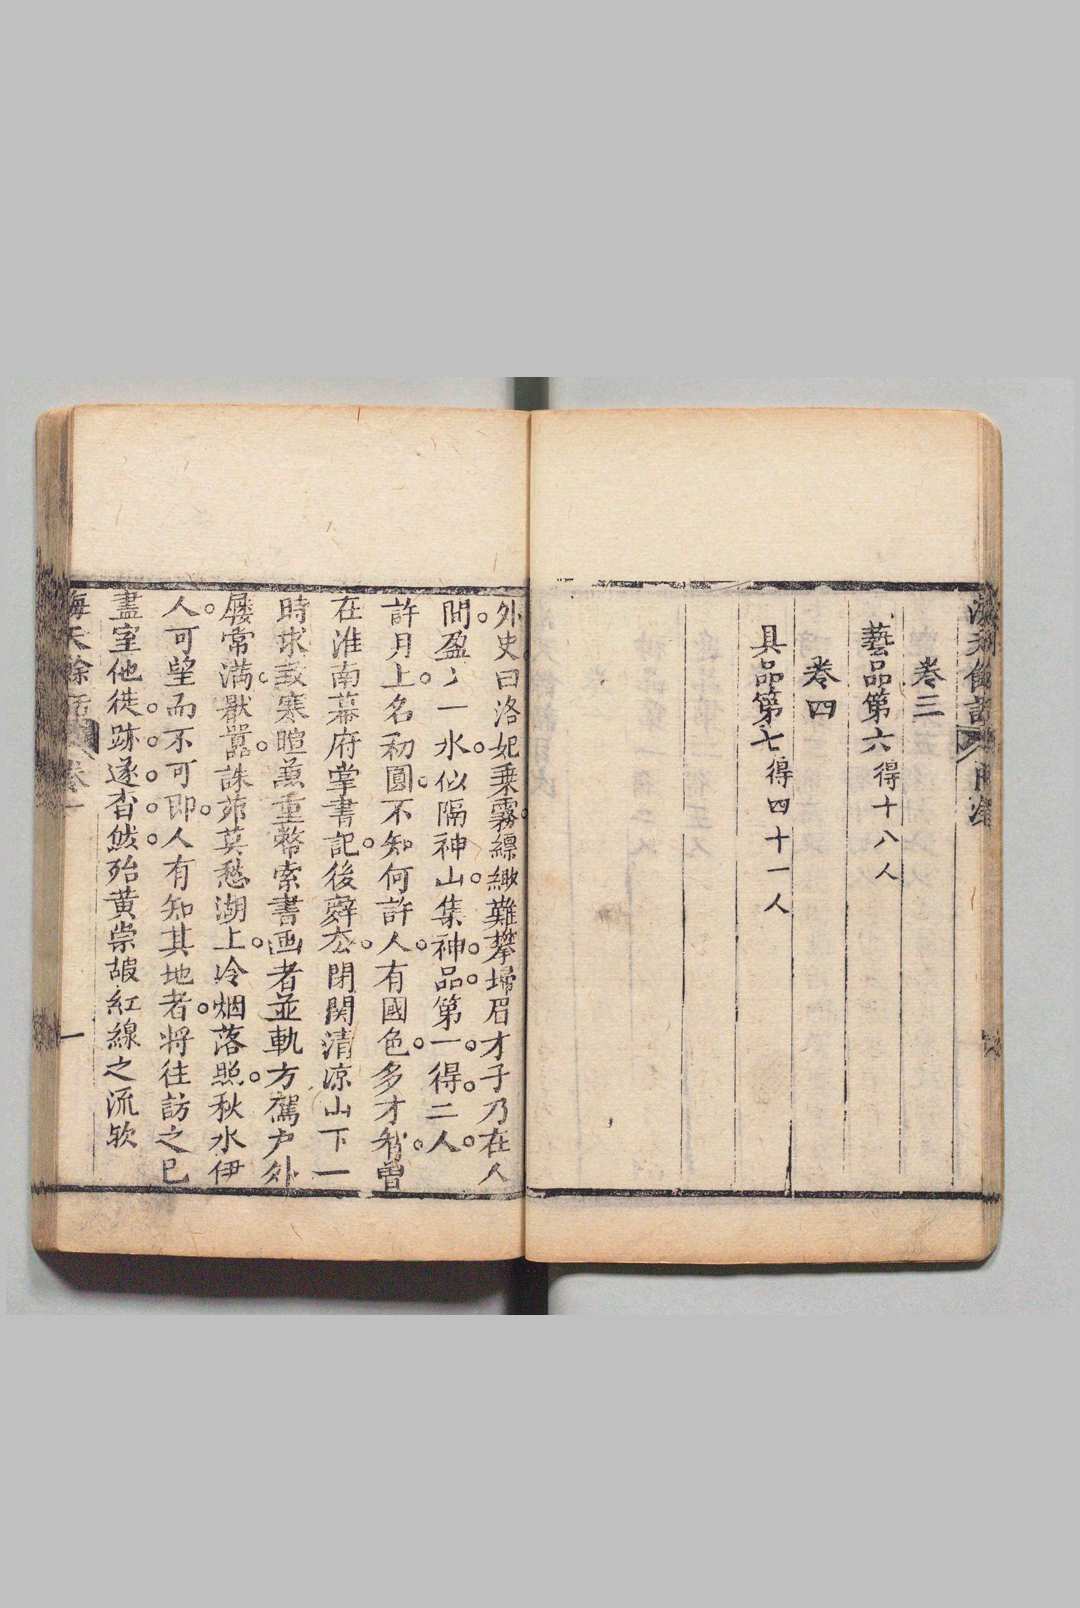 卷三
藝品第六得十八人
卷四
具品第七得四十一人
外史曰洛妃乗霧縹緲難攀埽眉才子乃在人
間盈〻一水似隔神山集神品第一得二人
許月上名初圓不知何許人有國色多才藝曽
在淮南幕府掌書記後辭去閉関清凉山下一
時求致寒暄薰重幣索書画者並軌方駕户外
屨常滿厭囂誅茆莫愁湖上冷烟落照秋水伊
人可望而不可即人有知其地者將往訪之已
盡室他徙跡遂杳然殆黄崇嘏紅線之流欤
海天餘話 卷一 一